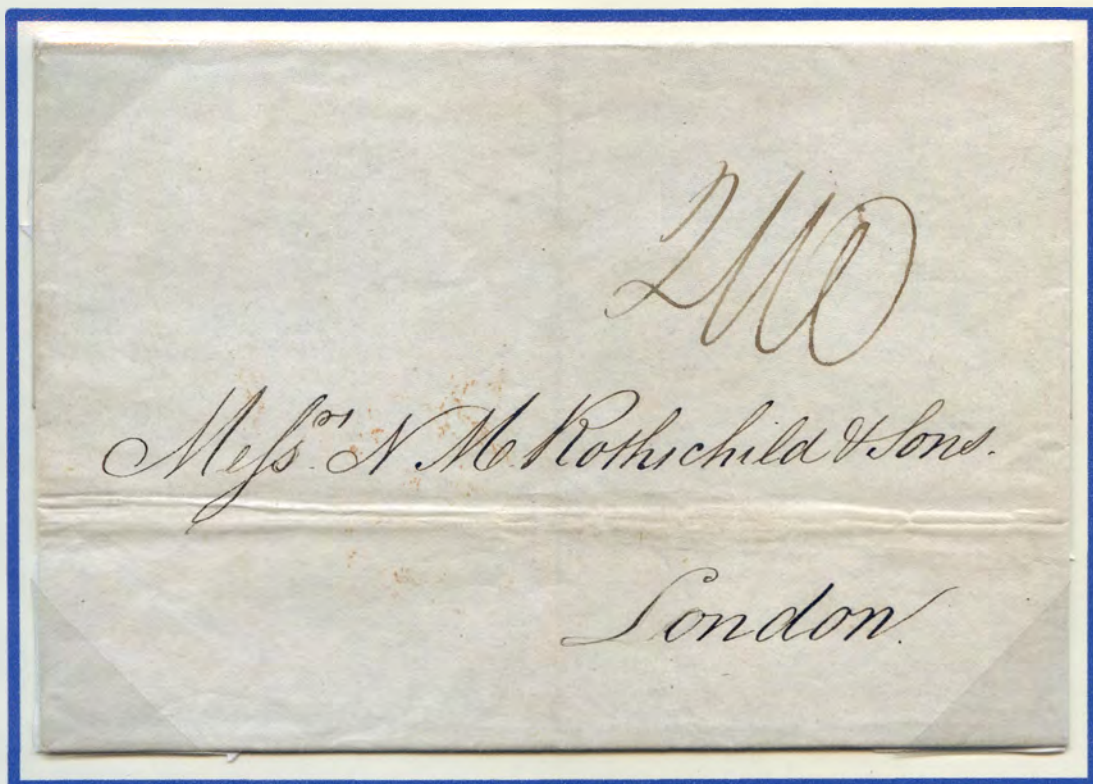 2/10
Meſsrs. N M Rothschild & Sons.
London.